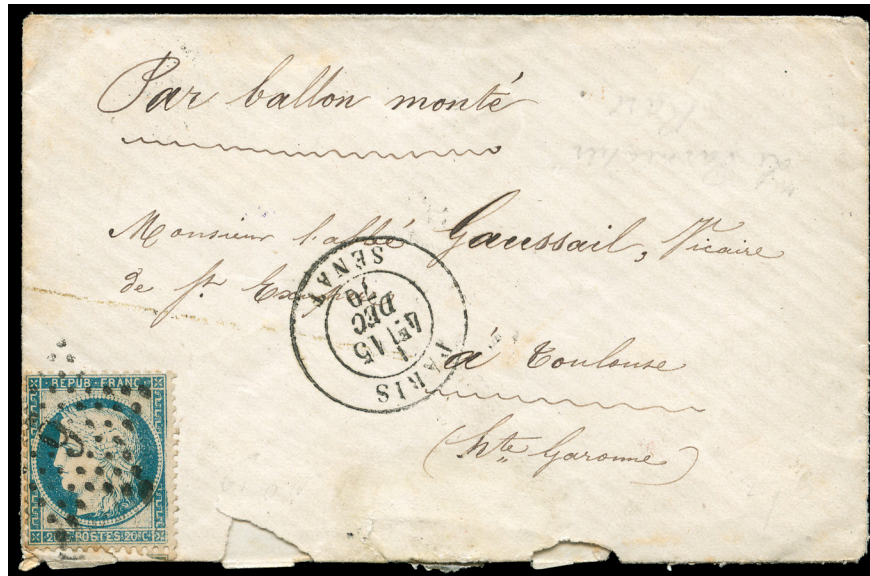 Par ballon monté
Monsieur l'abbé Gaussail, Vicaire
de St. Exupère
à Toulouse
(hte Garonne)
PARIS
SENAT
4E 15
DEC
70
REPUB. FRANC.
20 C POSTES 20 C